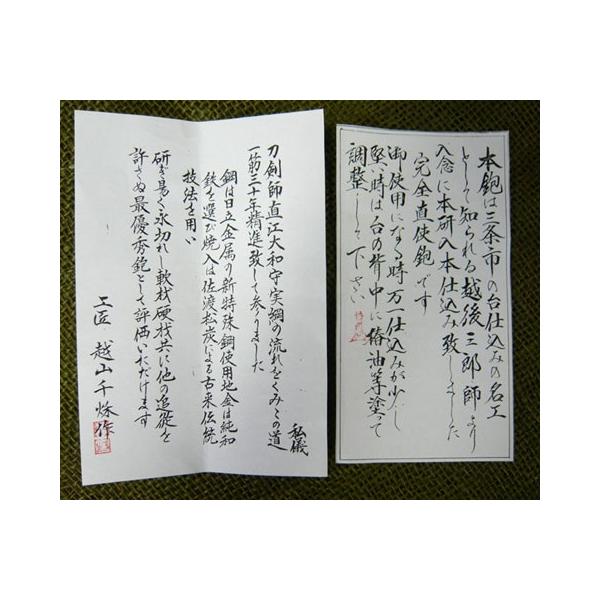 本鉋は三条市の台仕込みの名工
として知られる越後三郎師より
入念に本研入本仕込み致しました
完全直使鉋です
御使用になる時万一仕込みが少し
堅い時は台の背中に椿油等塗って
調整して下さい
私儀
刀剣師直江大和守実綱の流れをくみこの道
一筋三十年精進致して参りました
鋼は日立金属の新特殊鋼使用地金は純和
鉄を選び焼入は佐渡松炭による古来伝統
技法を用い
研ぎ易く永切れし軟材硬材共に他の追従を
許さぬ最優秀鉋として評価いただけます
工匠 越山千秋作